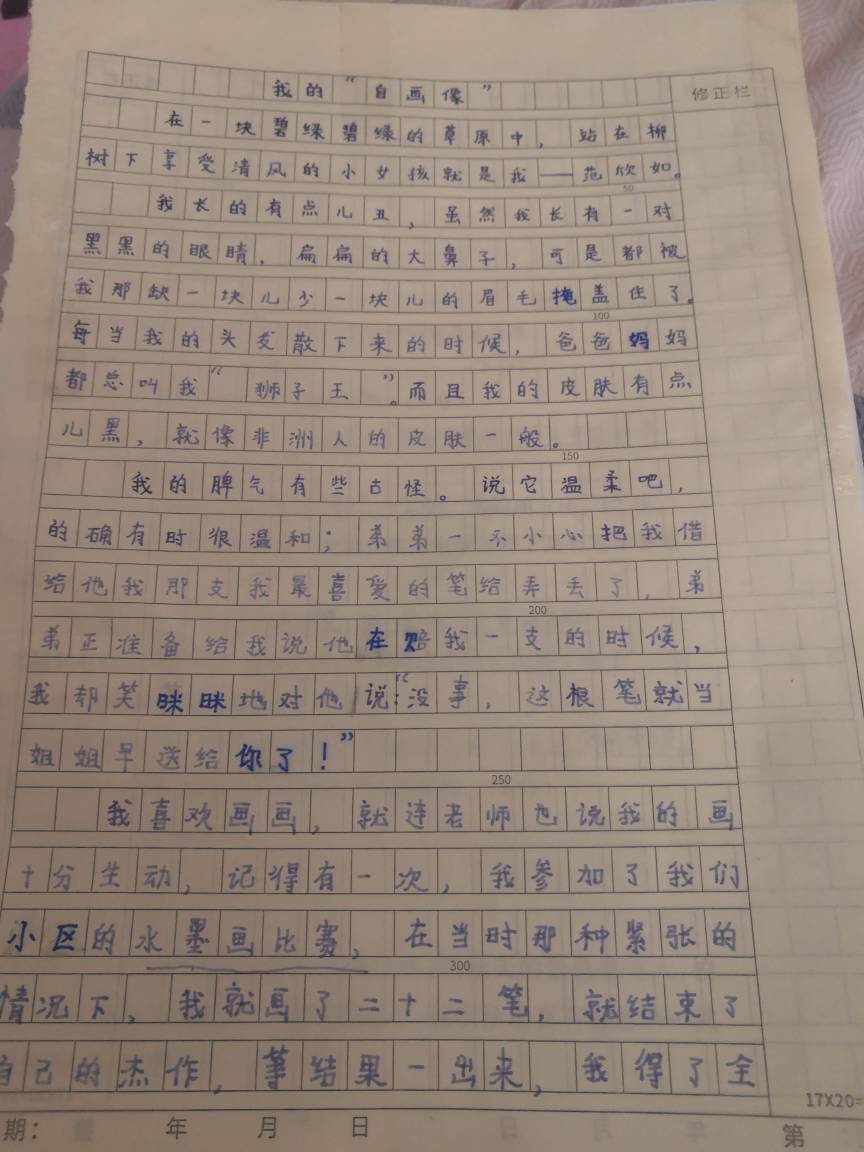 我的“自画像”
修正栏
在一块碧绿碧绿的草原中，站在柳
树下享受清风的小女孩就是我——范欣如。
50
我长的有点儿丑，虽然我长有一对
黑黑的眼睛，扁扁的大鼻子，可是都被
我那缺一块儿少一块儿的眉毛掩盖住了。
100
每当我的头发散下来的时候，爸爸妈妈
都总叫我“狮子王”。而且我的皮肤有点
儿黑，就像非洲人的皮肤一般。
150
我的脾气有些古怪。说它温柔吧，
的确有时很温和；弟弟一不小心把我借
给他我那支我最喜爱的笔给弄丢了，弟
200
弟正准备给我说他在赔我一支的时候，
我却笑眯眯地对他说：“没事，这根笔就当
姐姐早送给你了！”
250
我喜欢画画，就连老师也说我的画
十分生动，记得有一次，我参加了我们
小区的水墨画比赛，在当时那种紧张的
300
情况下，我就画了二十二笔，就结束了
自己的杰作，等结果一出来，我得了全
17X20=
期： 年 月 日 第